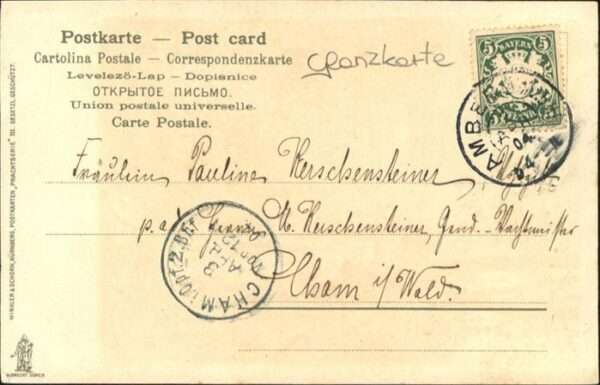 Postkarte — Post card
Cartolina Postale — Correspondenzkarte
Levelező-Lap — Dopisnice
ОТКРЫТОЕ ПИСЬМО.
Union postale universelle.
Carte Postale.
Glanzkarte
5 BAYERN 5
AMBERG
04
Fräulein Pauline Kerschensteiner,
p. ad. Herrn M. Kerschensteiner, Gend.-Wachtmister
Cham i/Wald.
CHAM
3
WINKLER & SCHORN, NÜRNBERG, POSTKARTEN „PRACHTSERIE" III. GESETZL. GESCHÜTZT.
ALBRECHT DÜRER